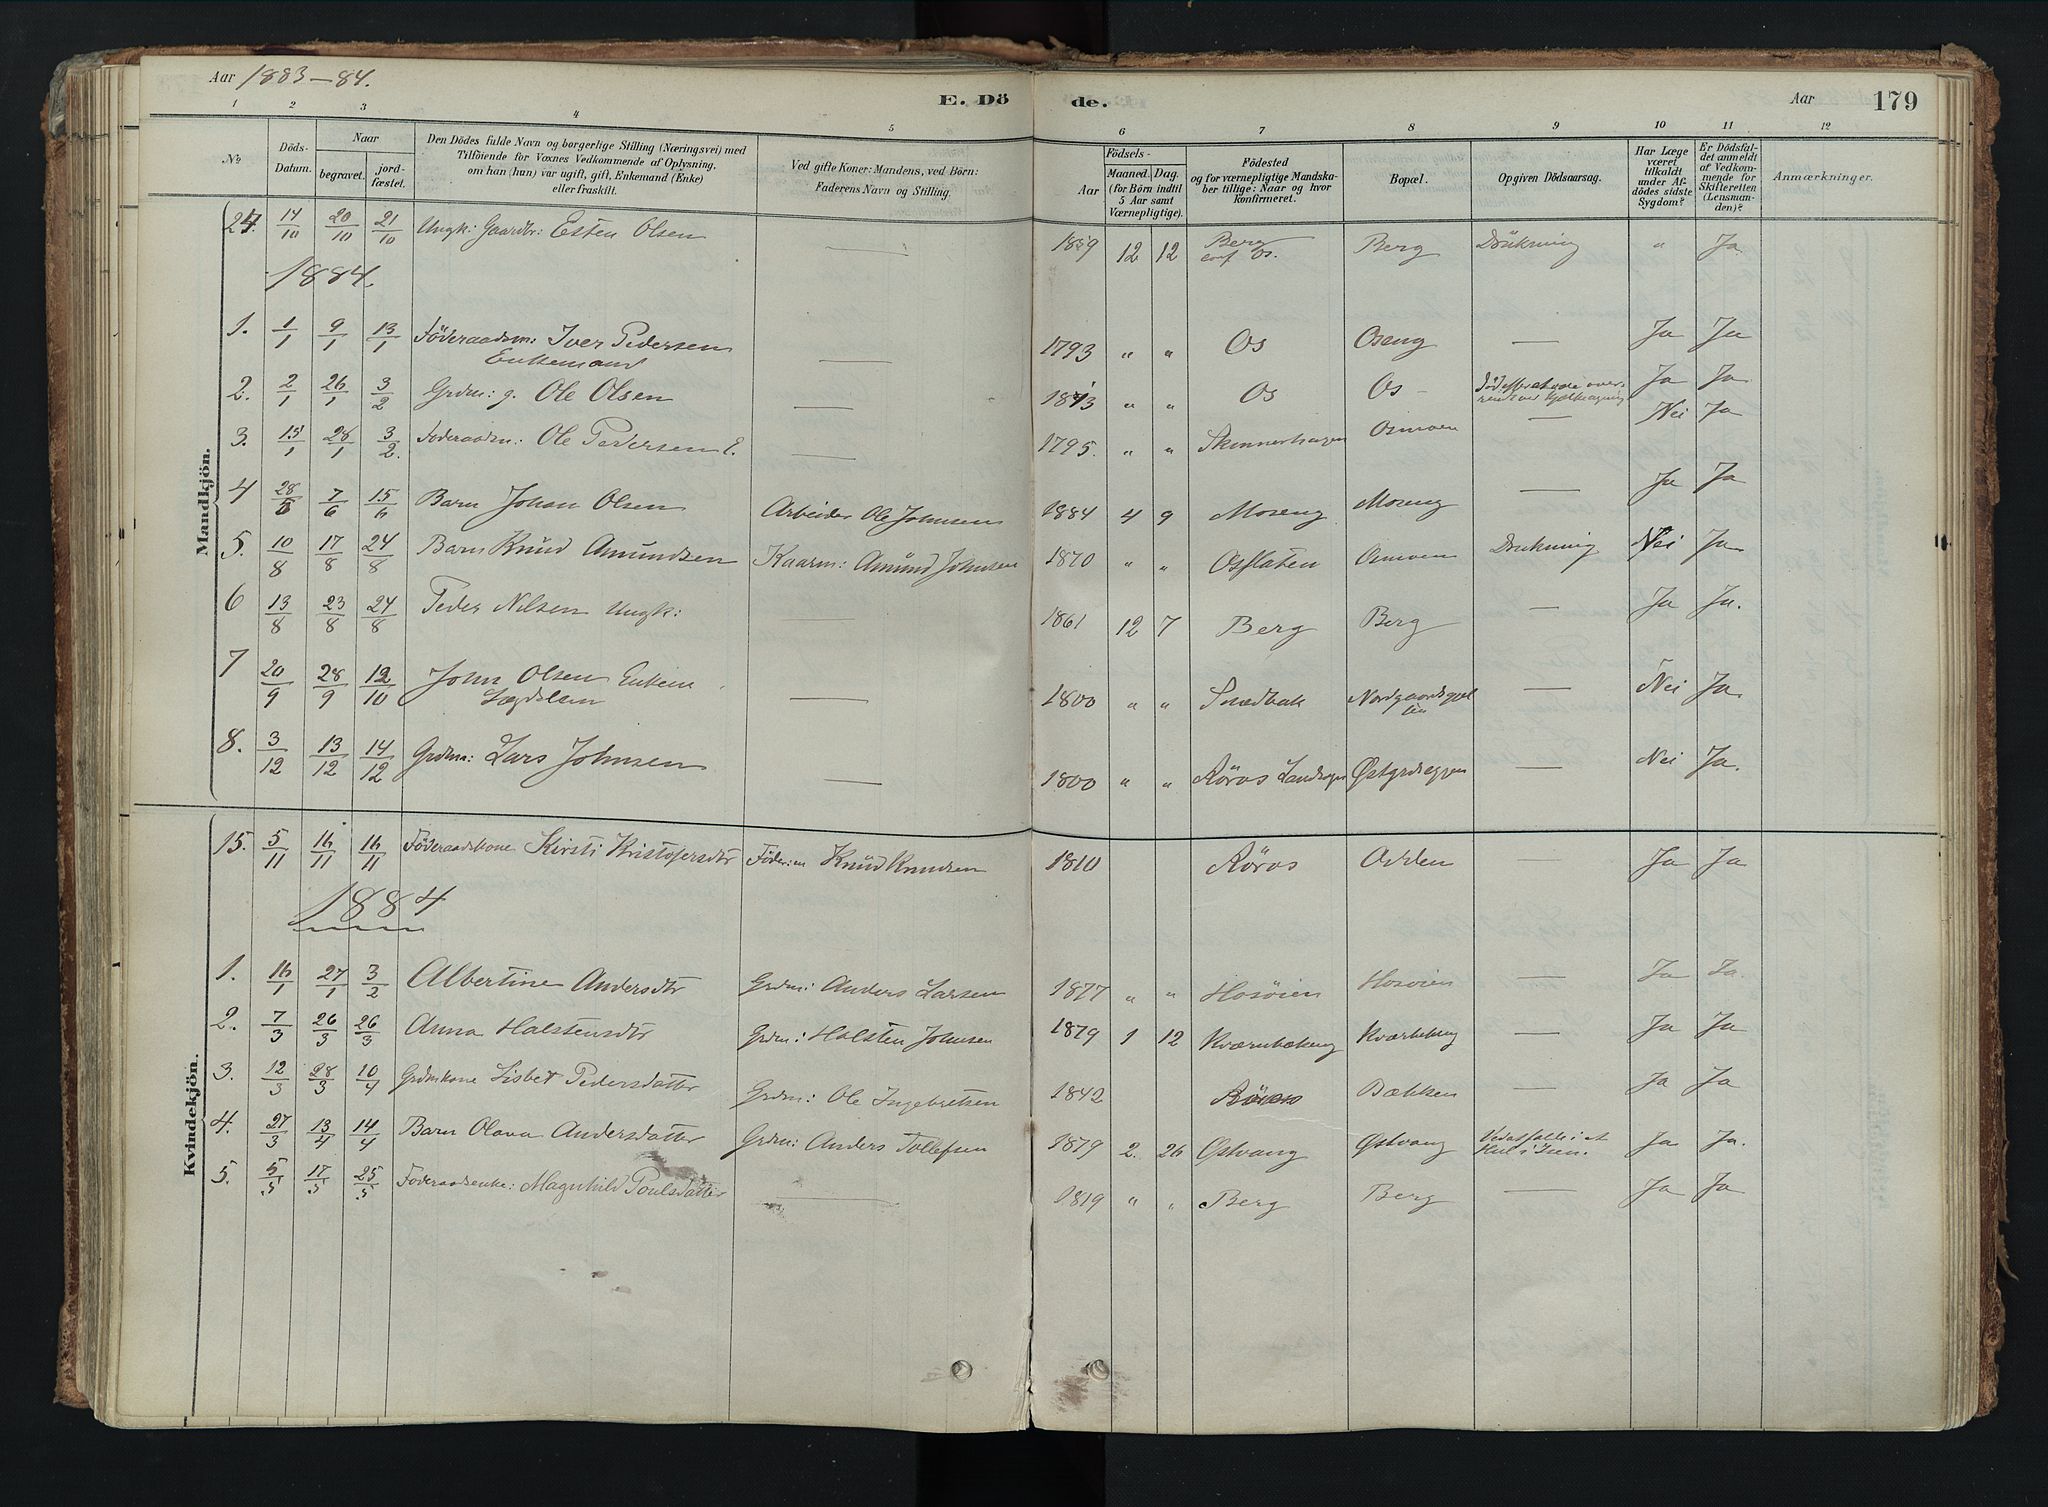 Aar 1883-84.
E. Dö de.
Aar 179
1 2 3 4 5 6 7 8 9 10 11 12
No
Döds-Datum.
Naar
begravet.
jord-fæstet.
Den Dödes fulde Navn og borgerlige Stilling (Næringsvei) med
Tilföiende for Voxnes Vedkommende af Oplysning,
om han (hun) var ugift, gift, Enkemand (Enke)
eller fraskilt.
Ved gifte Koner: Mandens, ved Börn:
Faderens Navn og Stilling.
Födsels-
Aar
Maaned. Dag.
(for Börn indtil
5 Aar samt
Værnepligtige).
Födested
og for værnepligtige Mandska-
ber tillige: Naar og hvor
konfirmeret.
Bopæl.
Opgiven Dödsaarsag.
Har Læge
været
tilkaldt
under Af-
dödes sidste
Sygdom?
Er Dödsfal-
det anmeldt
af Vedkom-
mende for
Skifteretten
(Lensman-
den)?
Anmærkninger.
Mandkjön.
24. 14/10 20/10 21/10 Ungk: Gaardbr: Esten Olsen — 1859 12 12 Berg conf Os. Berg Drukning " Ja
1884.
1. 1/1 9/1 13/1 Föderaadsm: Iver Pedersen Enkemand — 1793 " " Os Oseng — Ja Ja
2. 2/1 26/1 3/2 Grdm: g. Ole Olsen — 1813 " " Os Os - Ja Ja
3. 15/1 28/1 3/2. Föderaadsm: Ole Pedersen E. — 1795. " " Osmoen — Nei Ja
4 28/5 7/6 15/6 Barn Johan Olsen Arbeider Ole Johnsen 1884 4 9 Moseng Moseng — Ja Ja
5. 10/8 17/8 24/8 Barn Knud Amundsen Kaarm: Amund Johnsen 1870 " " Osflaten Osmoen Drukning Nei Ja
6 13/8 23/8 24/8 Peder Nilsen Ungk: — 1861 12 7 Berg Berg — Ja Ja.
7 20/9 28/9 12/10 John Olsen Enkem Lægdslem — 1800 " " — Nei Ja
8. 3/12 13/12 14/12 Grdm: Lars Johnsen — 1800 " " Röros Landsogn Østgrdseggen — Nei Ja.
Kvindekjön.
15. 5/11 16/11 16/11 Föderaadskone Kirsti Kristofersdtr Föderm Knud Knudsen 1810 Röros Odden — Ja Ja
1884
1. 16/1 27/1 3/2 Albertine Andersdtr Grdm: Anders Larsen 1877 " " Hosöien Hosöien — Ja Ja.
2. 7/3 26/3 26/3 Anna Halstensdtr Grdm: Halsten Johnsen 1879 1 12 — Ja Ja
3. 12/3 28/3 10/4 Grdmkone Lisbet Pedersdatter Grdm: Ole Ingebretsen 1842 Röros Bækken — Ja Ja
4. 27/3 13/4 14/4 Barn Olava Andersdatter Grdm: Anders Tollefsen 1879 2. 26 Østvang Østvang Ved at falde i et Hul i Isen. Ja Ja.
5. 5/5 17/5 25/5 Föderaadsenke: Magnhild Poulsdatter — 1819 " " Berg Berg — Ja Ja